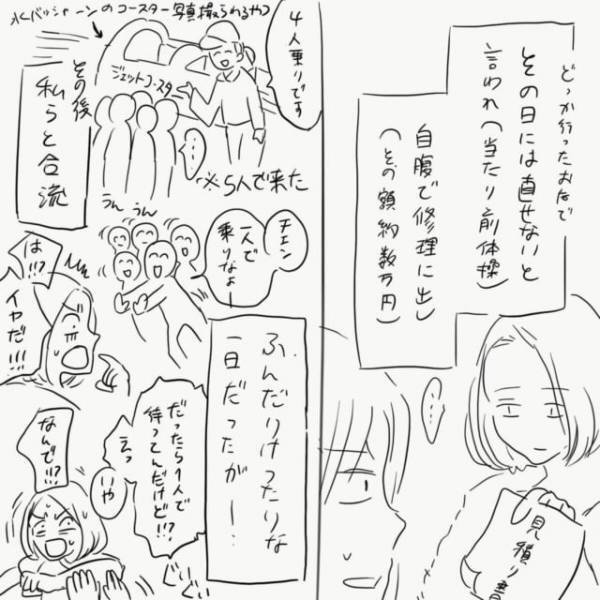 どっか行ったおかげで
その日には直せないと
言われ(当たり前体操)
自腹で修理に出し
(その額約数万円)
見積り書
水バッシャーンのコースター写真撮られるやつ
4人乗りです
ジェットコースター
※5人で来た
その後
私らと合流
うん
うん
チェン
一人で
乗りなよー
は!!?
イヤだ!!!
ふんだりけったりな
一日だったがー…
だったら1人で
待ってんだけど!!?
えっ
なんで!!?
いや